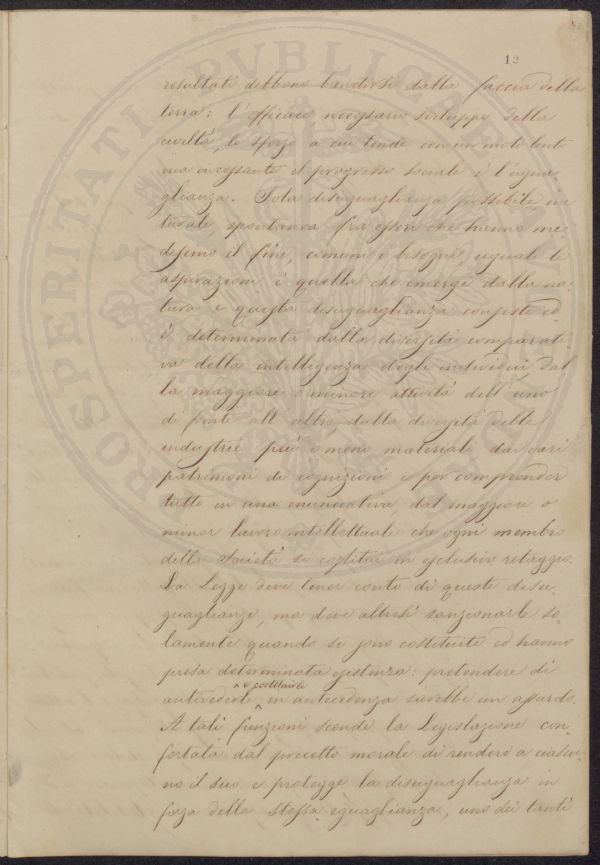 12
resultati debbono bandirsi dalla faccia della
terra: l'efficace, necessario sviluppo della
civiltà, lo sforzo a cui tende con un moto lento
ma incessante il progresso sociale è l'ugua-
glianza. Sola disuguaglianza possibile na
turale, spontanea fra esseri che hanno me
desimo il fine, comuni i bisogni, uguali le
aspirazioni è quella che emerge dalla na-
tura e questa disuguaglianza consiste ed
è determinata dalla diversità comparati-
va della intelligenza degli individui dal
la maggiore o minore attività dell'uno
di fronte all'altro dalla diversità delle
industrie più o meno materiali dai vari
patrimoni di cognizioni e per comprender
tutto in una enunciativa, dal maggiore o
minor lavoro intellettuale che ogni membro
della Società si costituì in esclusivo retaggio.
La Legge deve tener conto di queste disu-
guaglianze, ma deve altresì sanzionarle so-
lamente quando si sono costituite ed hanno
presa determinata esistenza: pretendere di
antivederle e costituirle in antecedenza sarebbe un assurdo.
A tali funzioni scende la Legislazione con-
fortata dal precetto morale di rendere a ciascu-
no il suo e protegge la disuguaglianza in
forza della stessa eguaglianza, uno dei tanti
PROSPERITATI PVBLICAE